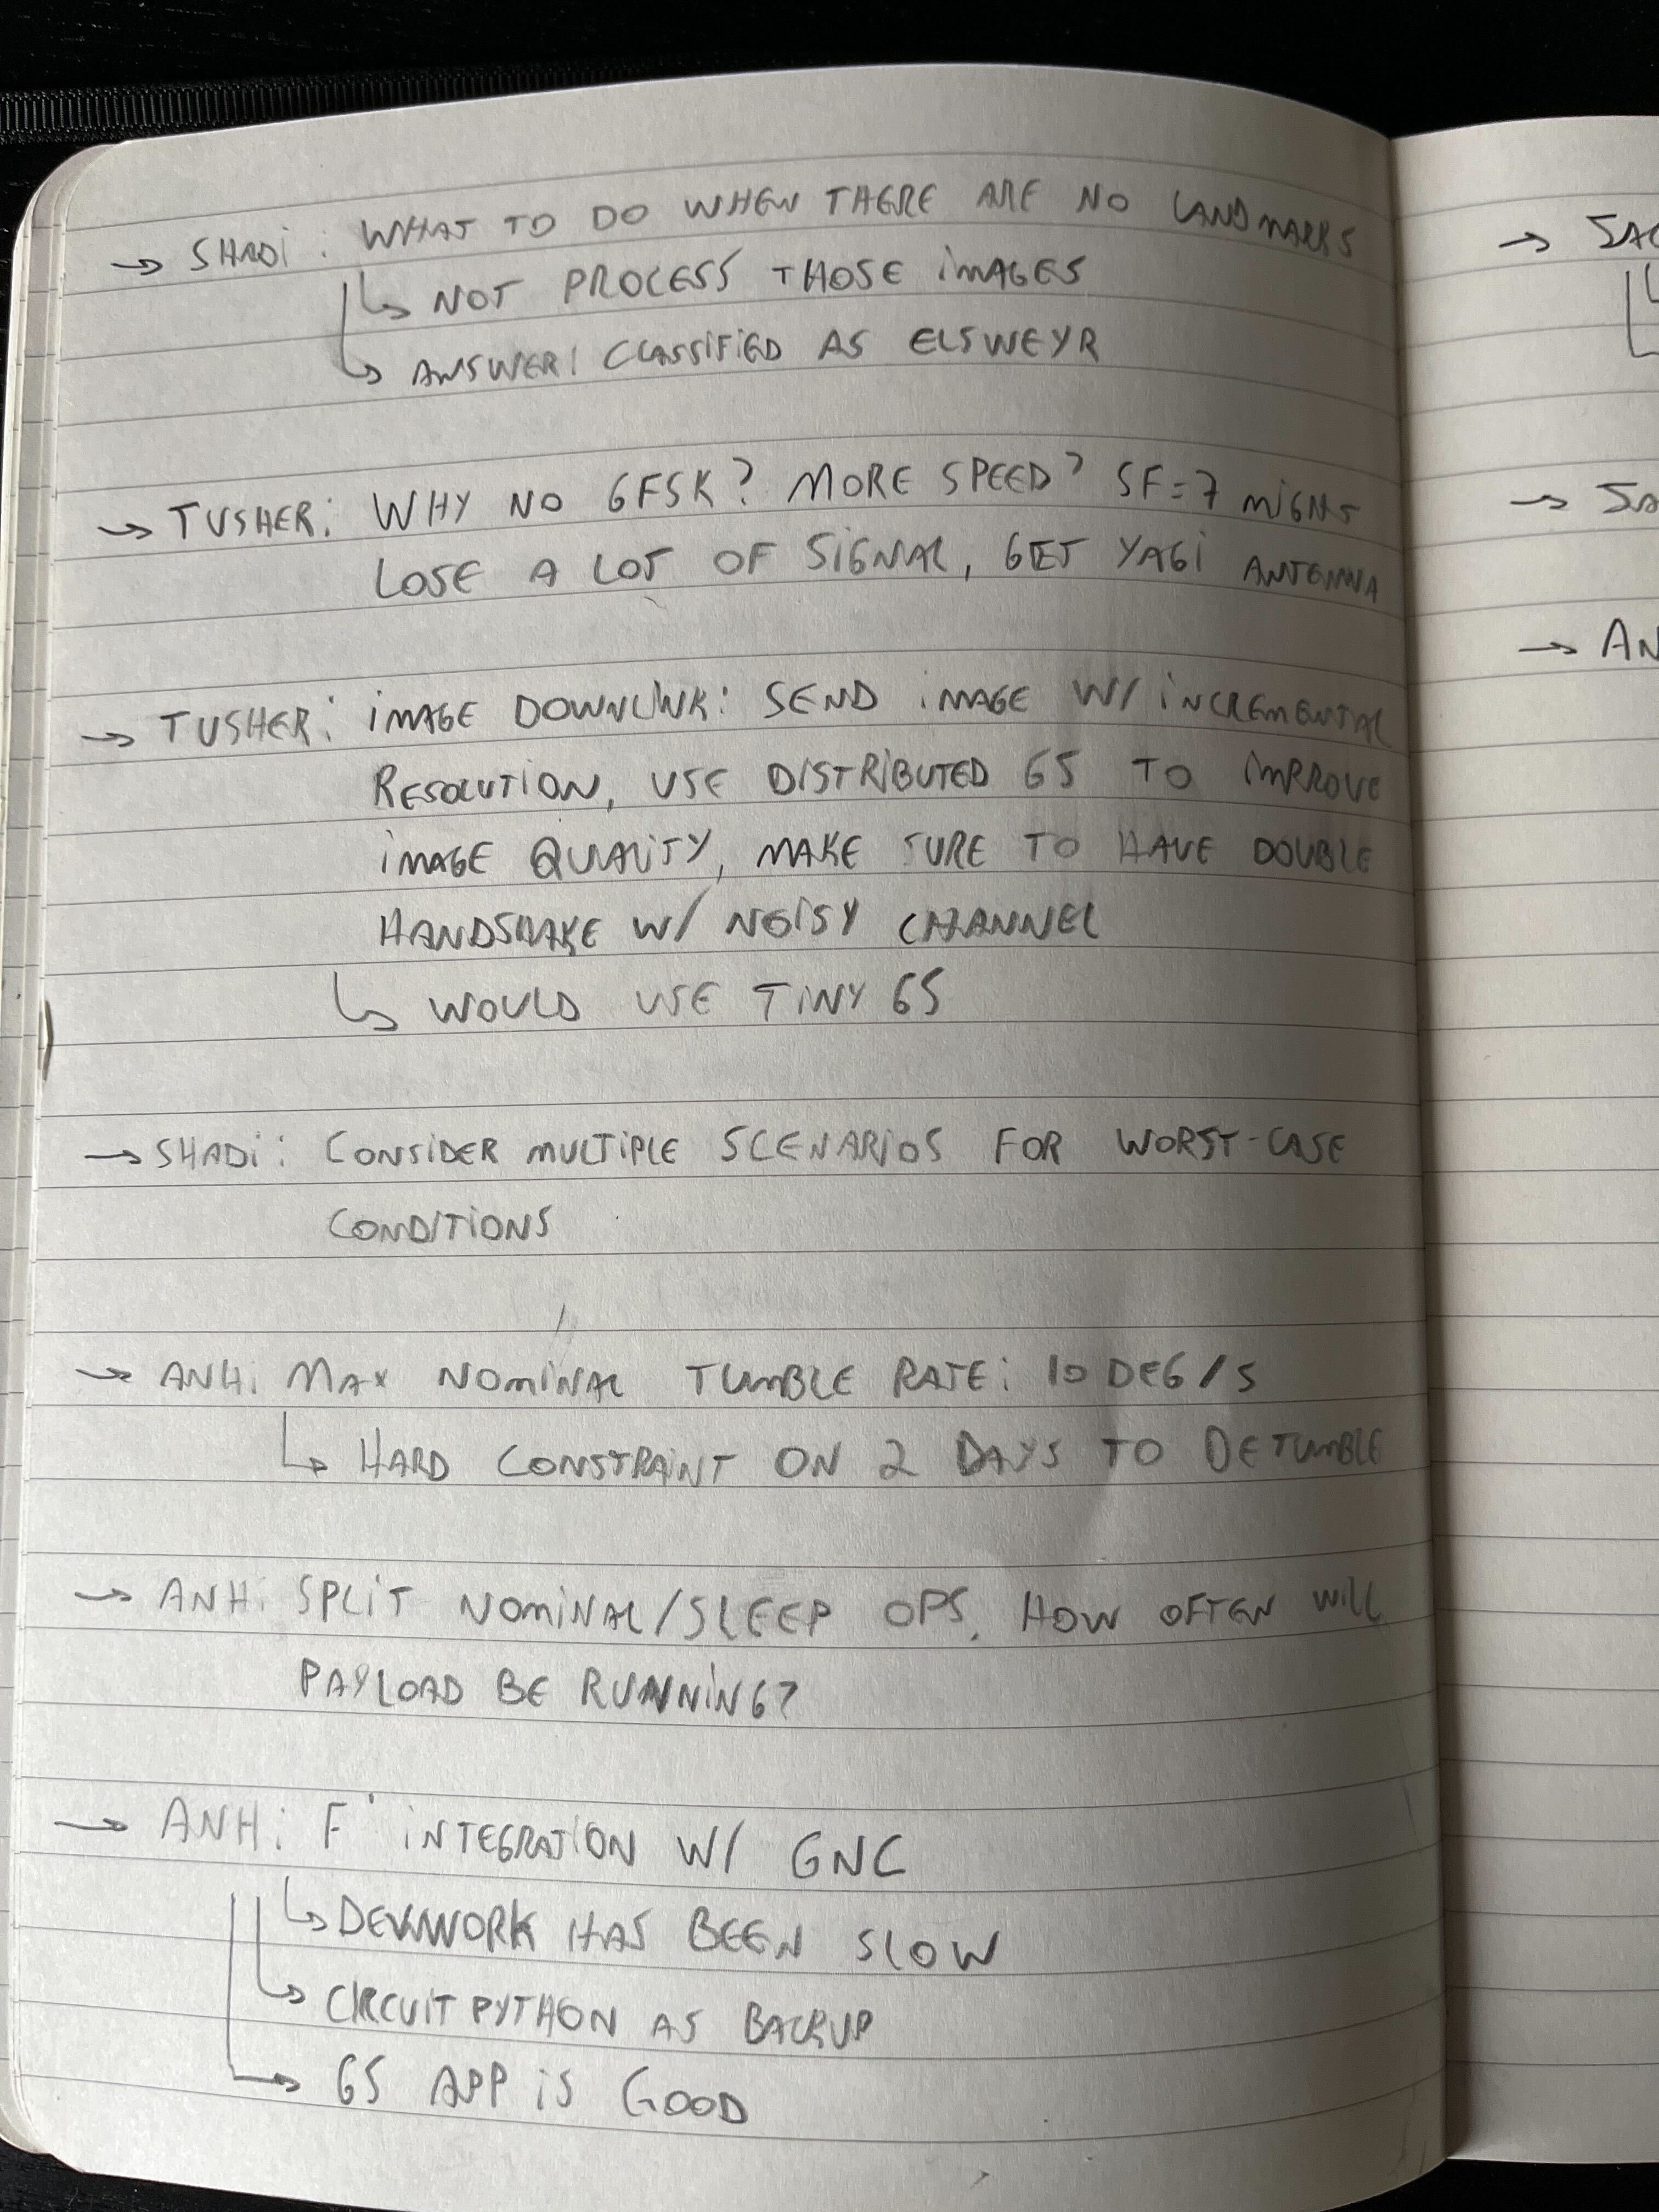 → SHADI: WHAT TO DO WHEN THERE ARE NO LANDMARKS
↳ NOT PROCESS THOSE IMAGES
↳ ANSWER: CLASSIFIED AS ELSWEYR
→ TUSHER: WHY NO GFSK? MORE SPEED? SF=7 MIGHT
LOSE A LOT OF SIGNAL, GET YAGI ANTENNA
→ TUSHER: IMAGE DOWNLINK: SEND IMAGE W/ INCREMENTAL
RESOLUTION, USE DISTRIBUTED GS TO IMPROVE
IMAGE QUALITY, MAKE SURE TO HAVE DOUBLE
HANDSHAKE W/ NOISY CHANNEL
↳ WOULD USE TINY GS
→ SHADI: CONSIDER MULTIPLE SCENARIOS FOR WORST-CASE
CONDITIONS
→ ANH: MAX NOMINAL TUMBLE RATE: 10 DEG/S
↳ HARD CONSTRAINT ON 2 DAYS TO DETUMBLE
→ ANH: SPLIT NOMINAL/SLEEP OPS. HOW OFTEN WILL
PAYLOAD BE RUNNING?
→ ANH: F' INTEGRATION W/ GNC
↳ HAS BEEN SLOW
↳ CIRCUITPYTHON AS BACKUP
↳ GS APP IS GOOD
→
→
→ AN